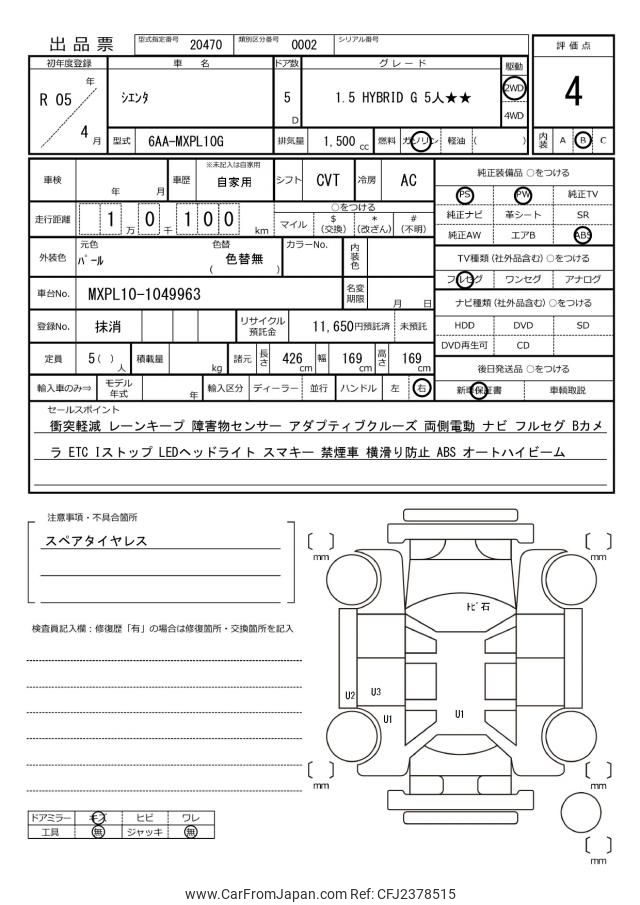 出品票 型式指定番号 20470 類別区分番号 0002 シリアル番号
評価点
4
内装 A B C
初年度登録 車名 ドア数 グレード 駆動
R 05 年 4 月 シエンタ 5 D 1.5 HYBRID G 5人★★ 2WD 4WD
型式 6AA-MXPL10G 排気量 1,500 cc 燃料 ガソリン 軽油 ( )
車検 年 月 車歴 ※未記入は自家用 自家用 シフト CVT 冷房 AC
走行距離 1 万 0 千 1 0 0 km
○をつける
マイル $ (交換) * (改ざん) # (不明)
外装色 元色 パール 色替 ( 色替無 ) カラーNo. 内装色
車台No. MXPL10-1049963 名変期限 月 日
登録No. 抹消 リサイクル預託金 11,650円預託済 未預託
定員 5 ( ) 人 積載量 kg 諸元 長さ 426 cm 幅 169 cm 高さ 169 cm
輸入車のみ⇒ モデル年式 年 輸入区分 ディーラー 並行 ハンドル 左 右
純正装備品 ○をつける
PS PW 純正TV
純正ナビ 革シート SR
純正AW エアB ABS
TV種類 (社外品含む) ○をつける
フルセグ ワンセグ アナログ
ナビ種類 (社外品含む) ○をつける
HDD DVD SD
DVD再生可 CD
後日発送品 ○をつける
新車保証書 車輌取説
セールスポイント
衝突軽減 レーンキープ 障害物センサー アダプティブクルーズ 両側電動 ナビ フルセグ Bカメ
ラ ETC Iストップ LEDヘッドライト スマキー 禁煙車 横滑り防止 ABS オートハイビーム
注意事項・不具合箇所
スペアタイヤレス
検査員記入欄：修復歴「有」の場合は修復箇所・交換箇所を記入
mm mm
トビ石
U2 U3
U1 U1
mm mm
mm
ドアミラー キズ ヒビ ワレ
工具 無 ジャッキ 無
www.CarFromJapan.com Ref: CFJ2378515